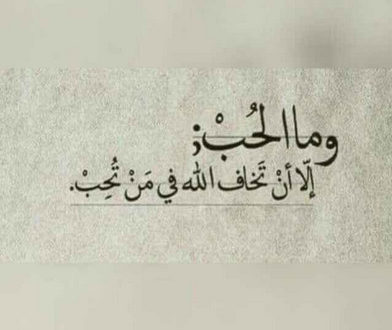 وما الحُبْ ;
إلّا أنْ تَخاف الله في مَنْ تُحِبْ.